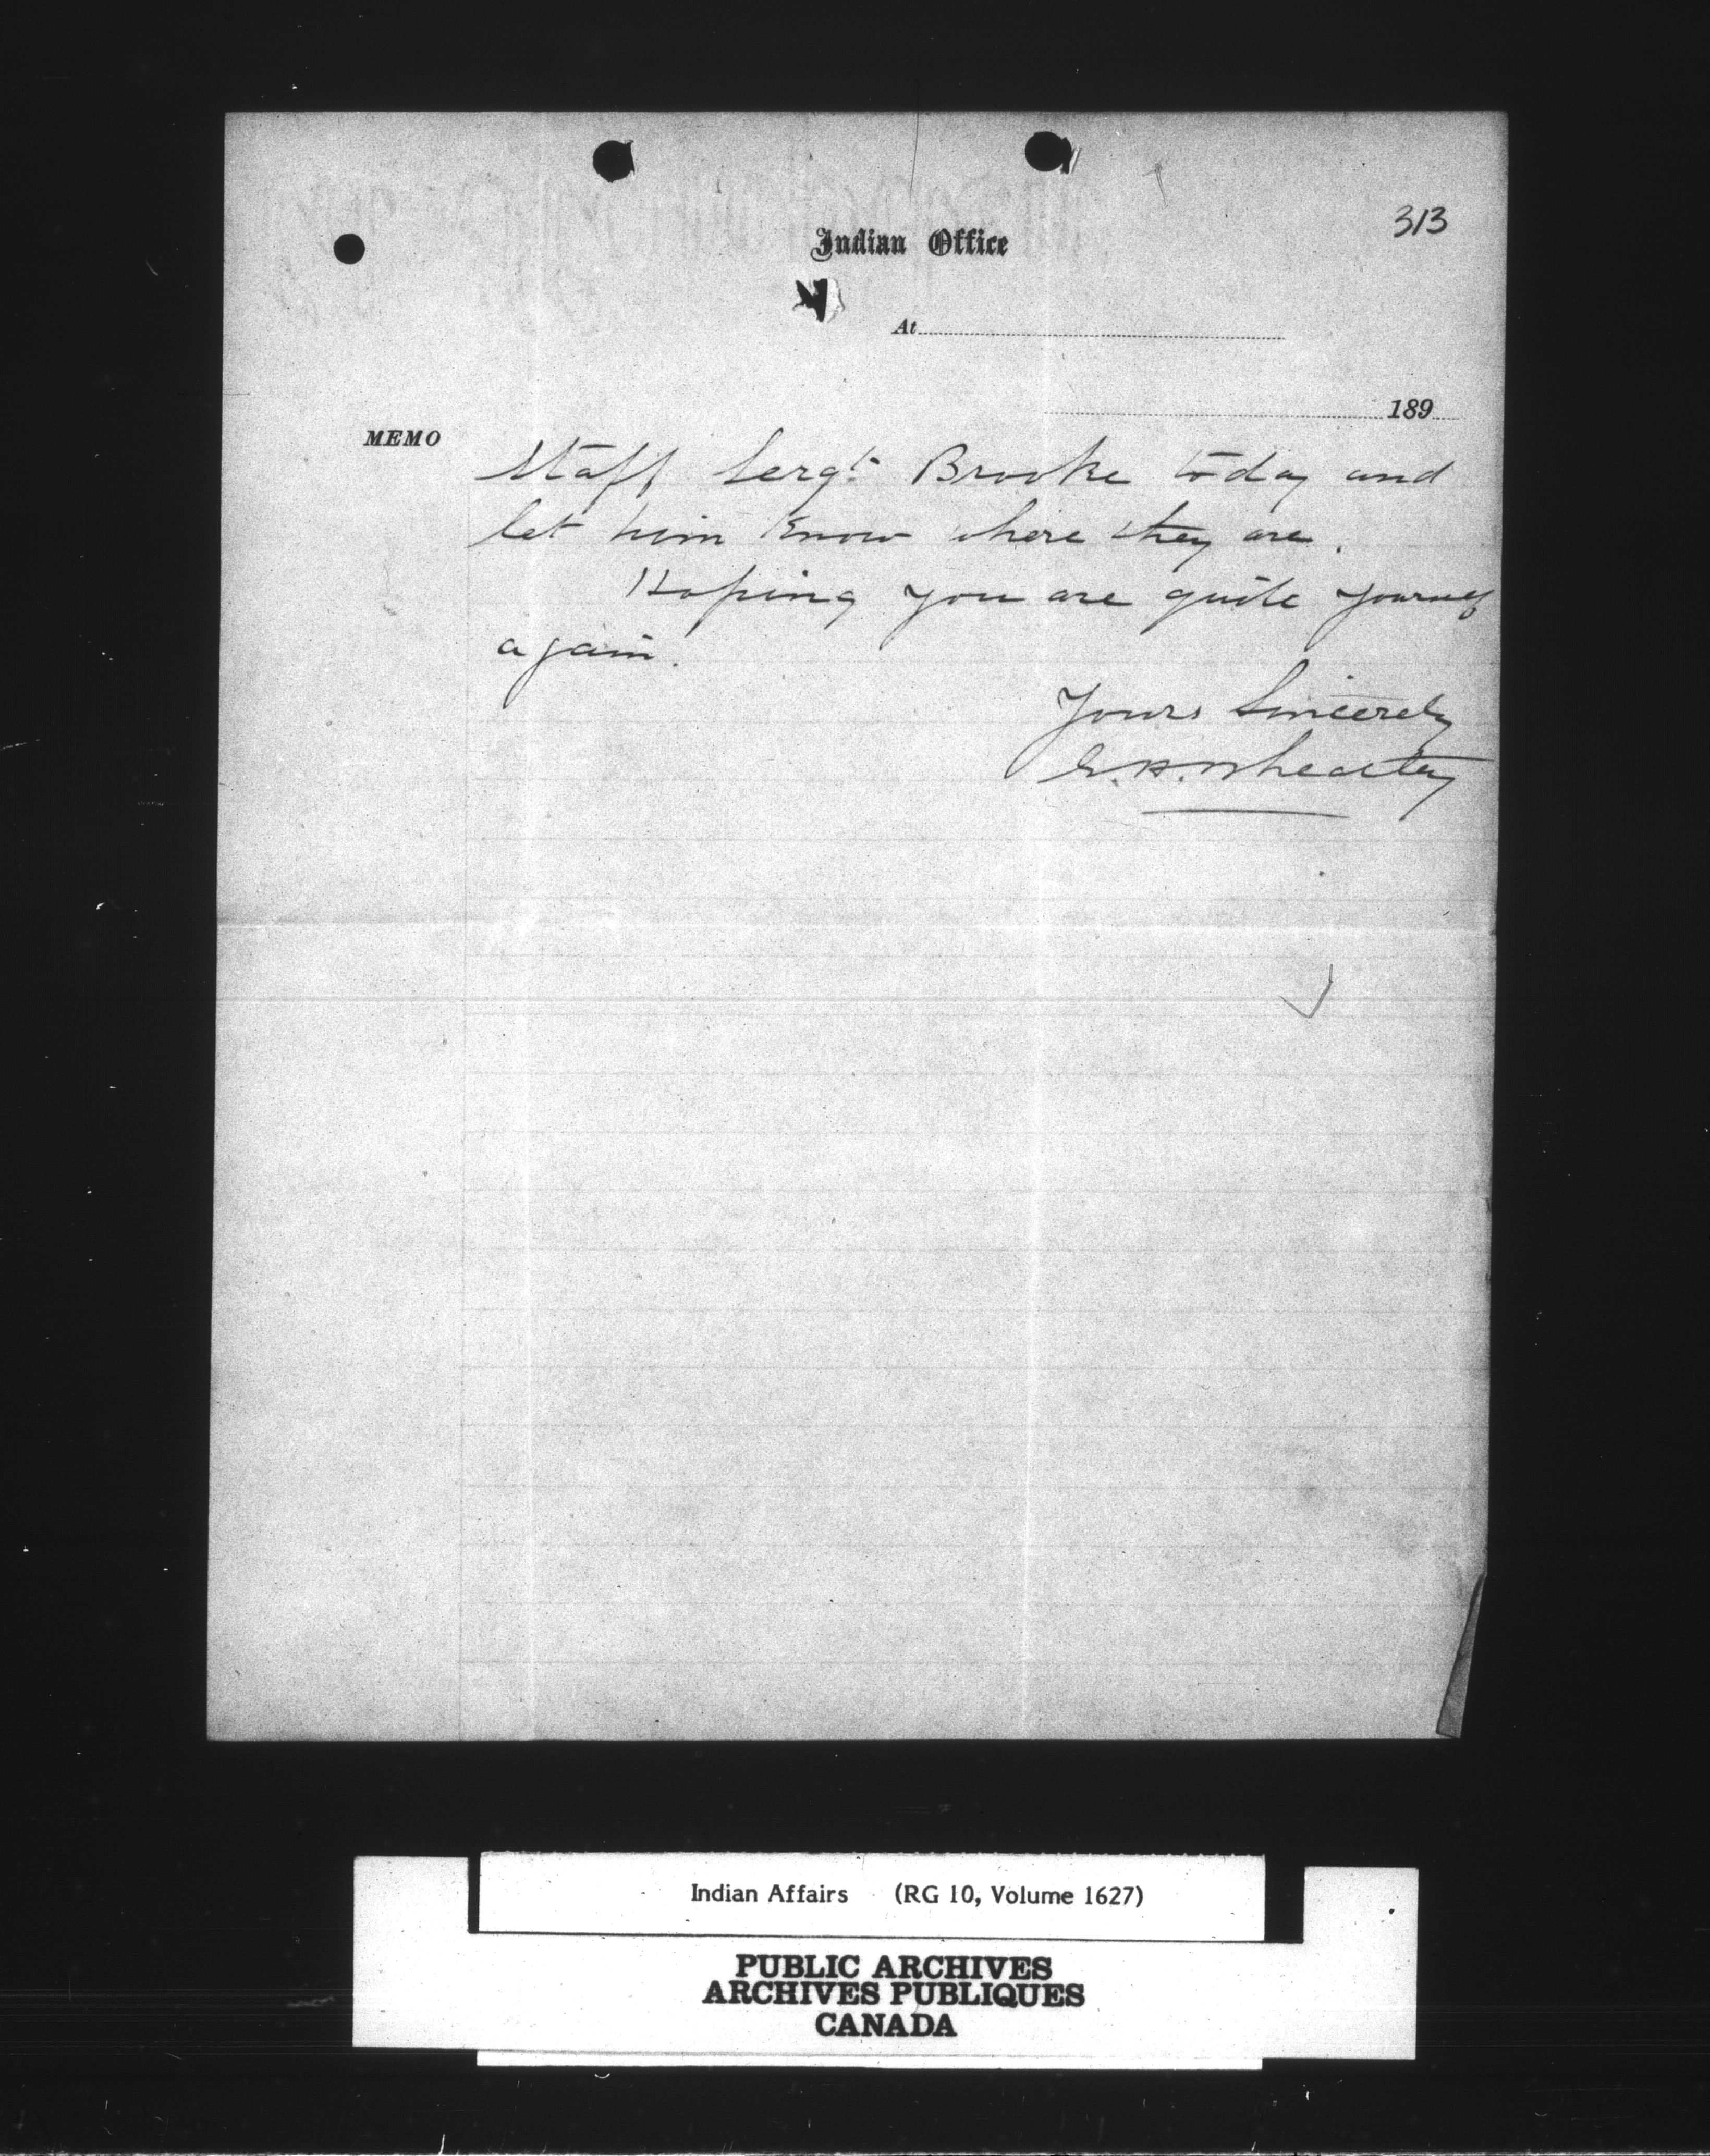 313
Indian Office
At
189
MEMO
Staff Sergt. Brooke today and
let him know where they are.
Hoping you are quite yourself
again.
Yours Sincerely
G.H. Wheatley
Indian Affairs (RG 10, Volume 1627)
PUBLIC ARCHIVES
ARCHIVES PUBLIQUES
CANADA